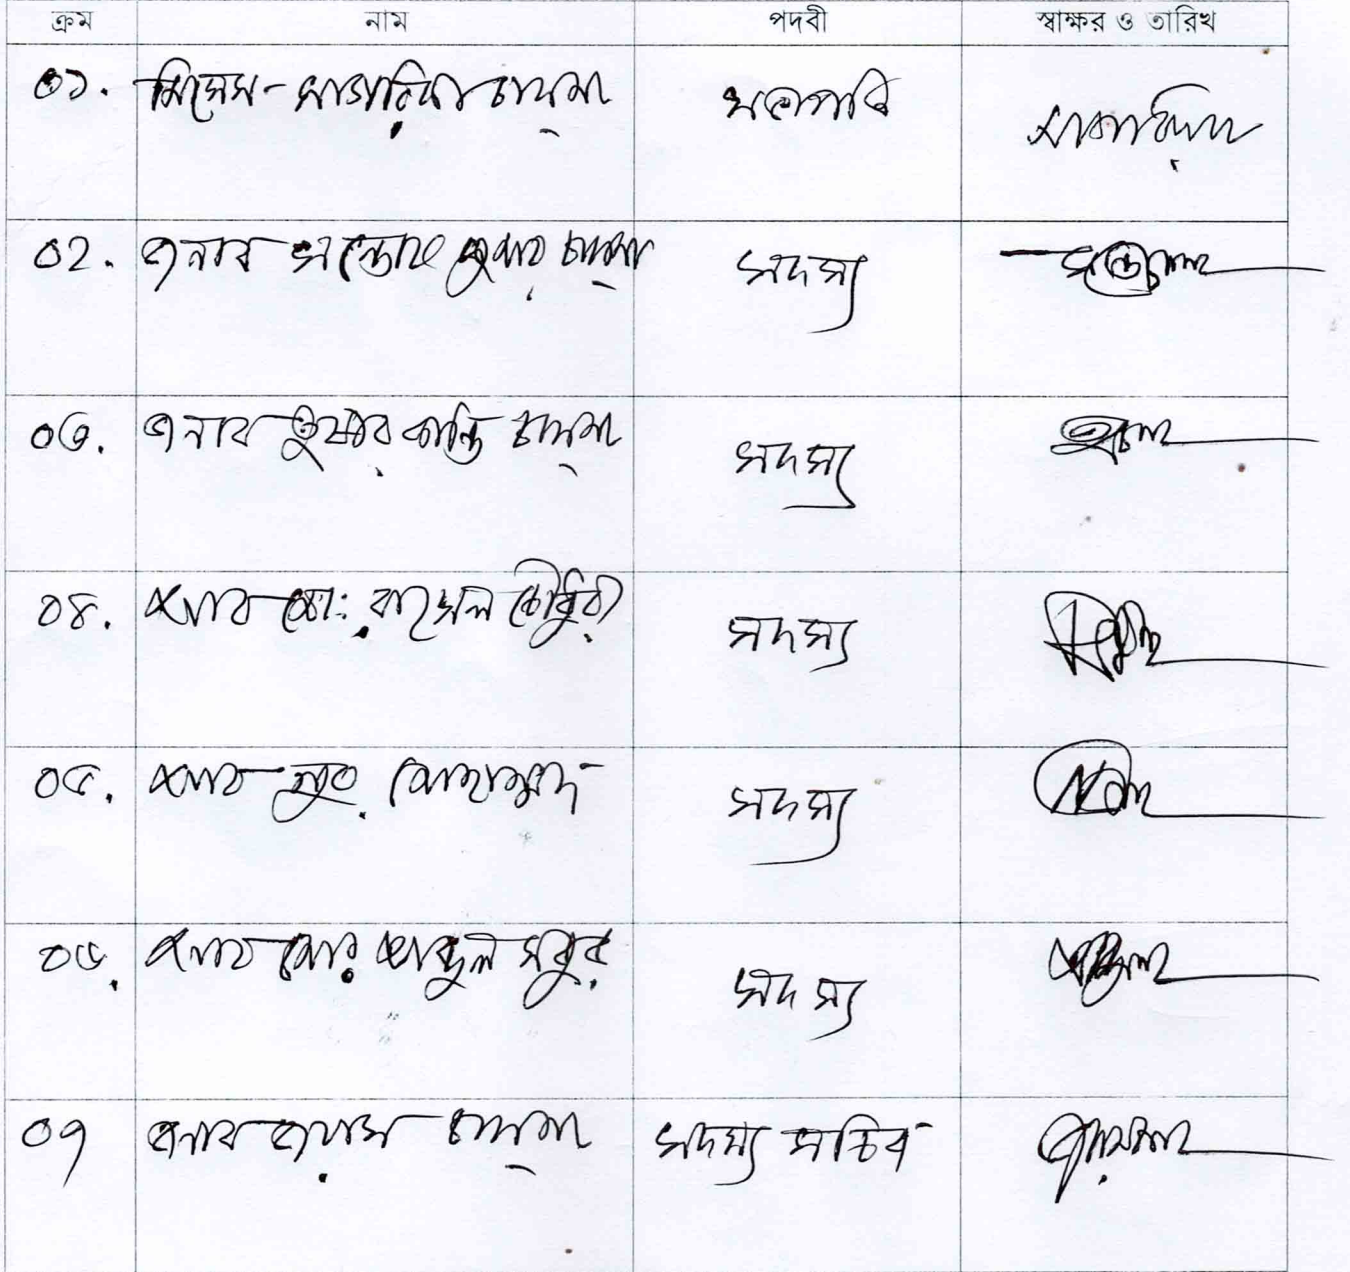 ক্রম নাম পদবী স্বাক্ষর ও তারিখ
০১. মিসেস- সাগরিকা চাকমা সভাপতি
০২. জনাব সন্তোষ কুমার চাকমা সদস্য
০৩. জনাব তুষার কান্তি চাকমা সদস্য
০৪. জনাব মো: রাসেল চৌধুরী সদস্য
০৫. জনাব নুর মোহাম্মদ সদস্য
০৬. জনাব মোঃ আব্দুল সবুর সদস্য
০৭ জনাব চাকমা সদস্য সচিব